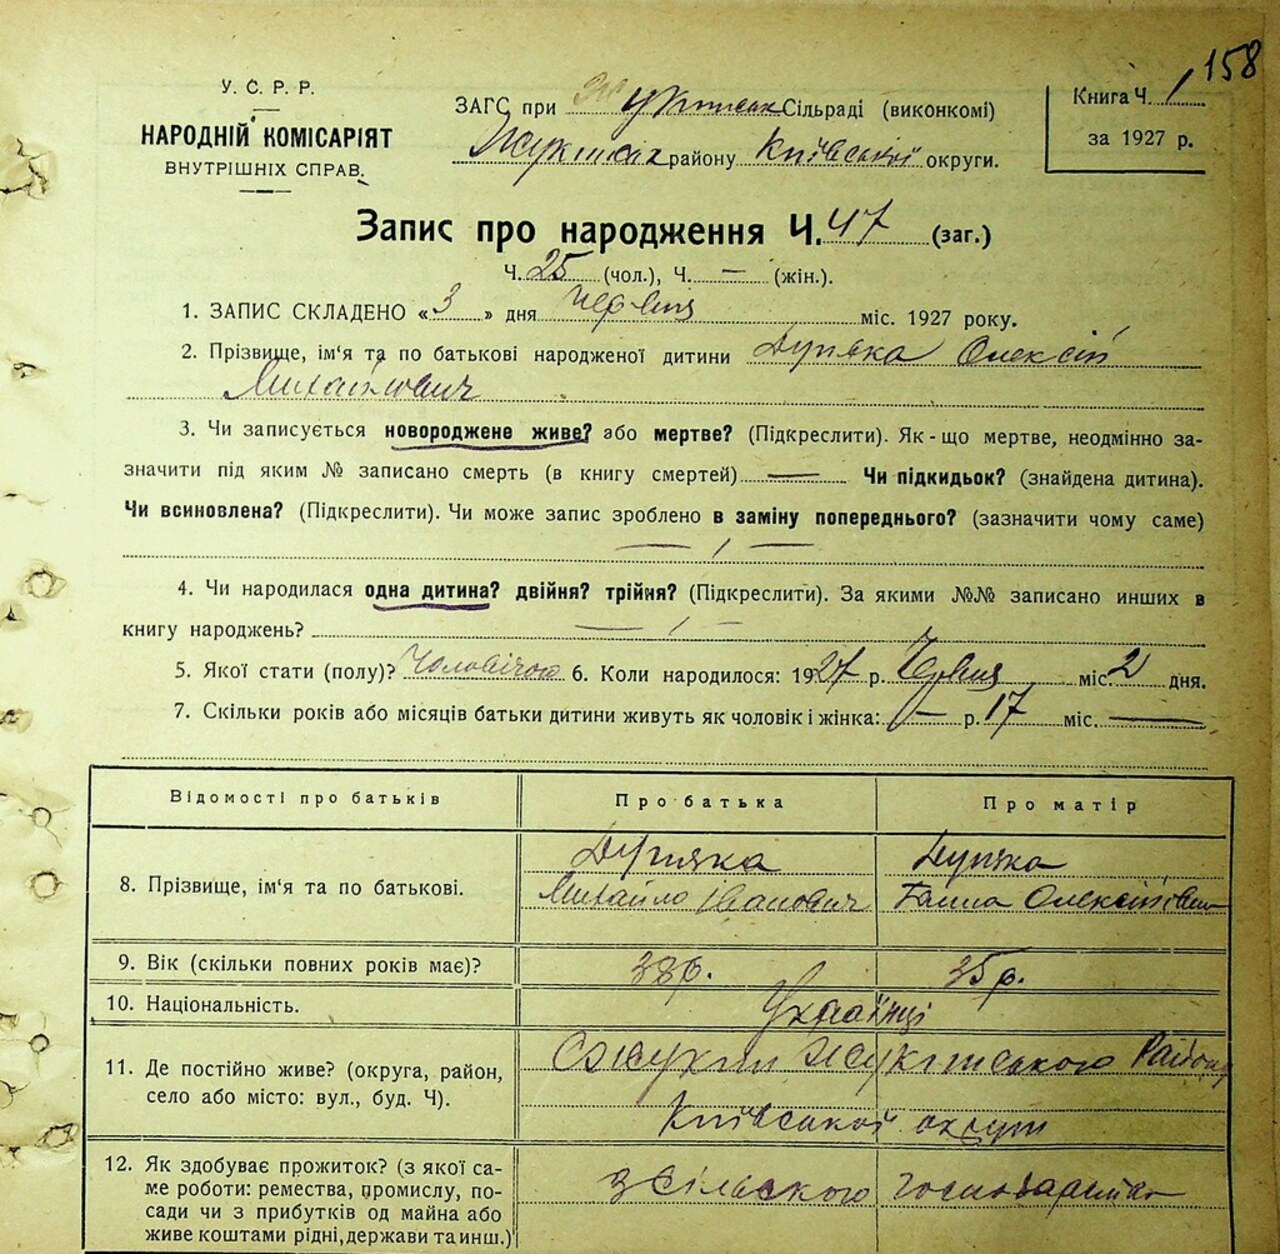 158
У. С. Р. Р.
НАРОДНІЙ КОМІСАРІЯТ
ВНУТРІШНІХ СПРАВ.
ЗАГС при Жукинськ Сільраді (виконкомі)
Жукинськ району Київської округи.
Книга Ч. 1
за 1927 р.
Запис про народження Ч. 47 (заг.)
Ч. 25 (чол.), Ч. — (жін.).
1. ЗАПИС СКЛАДЕНО «3» дня Червня міс. 1927 року.
2. Прізвище, ім'я та по батькові народженої дитини Дупяка Олексій
Михайлович
3. Чи записується новороджене живе? або мертве? (Підкреслити). Як-що мертве, неодмінно за-
значити під яким № записано смерть (в книгу смертей) — Чи підкидьок? (знайдена дитина).
Чи всиновлена? (Підкреслити). Чи може запис зроблено в заміну попереднього? (зазначити чому саме)
4. Чи народилася одна дитина? двійня? трійня? (Підкреслити). За якими №№ записано инших в
книгу народжень?
5. Якої стати (полу)? Чоловічою 6. Коли народилося: 1927 р. Червня міс. 2 дня.
7. Скільки років або місяців батьки дитини живуть як чоловік і жінка: — р. 17 міс. —
Відомості про батьків
Про батька
Про матір
8. Прізвище, ім'я та по батькові.
Дупяка
Михайло Іванович
Дупяка
Ганна Олексіївна
9. Вік (скільки повних років має)?
38 р.
35 р.
10. Національність.
Українці
11. Де постійно живе? (округа, район,
село або місто: вул., буд. Ч).
С Жукин Жукинського Району
Київської округи
12. Як здобуває прожиток? (з якої са-
ме роботи: ремества, промислу, по-
сади чи з прибутків од майна або
живе коштами рідні, держави та инш.)
з сільского господарства